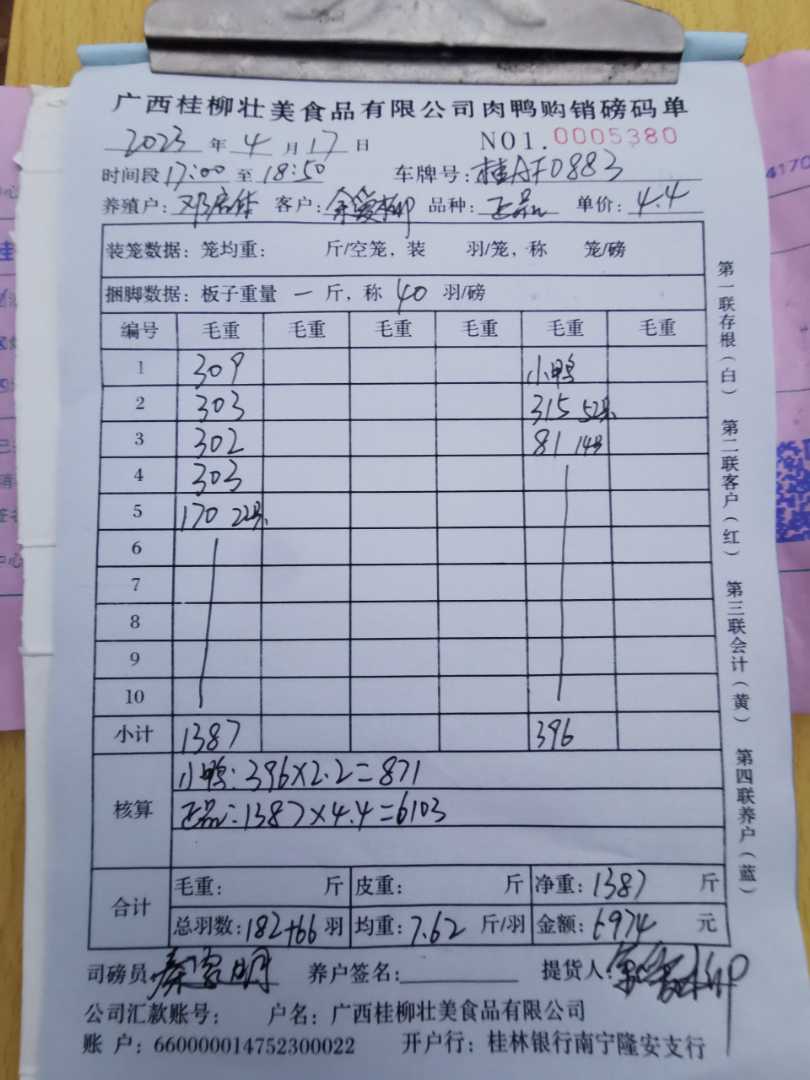 广西桂柳壮美食品有限公司肉鸭购销磅码单
2023 年 4 月 17 日 NO1.0005380
时间段 17:00 至 18:50 车牌号: 桂AF0883
养殖户: 客户: 余爱柳 品种: 正品 单价: 4.4
装笼数据: 笼均重: 斤/空笼, 装 羽/笼, 称 笼/磅
捆脚数据: 板子重量 一 斤, 称 40 羽/磅
编号 毛重 毛重 毛重 毛重 毛重 毛重
1 309 小鸭
2 303 315 52只
3 302 81 14只
4 303
5 170 22只
6
7
8
9
10
小计 1387 396
核算
小鸭: 396×2.2=871
正品: 1387×4.4=6103
合计
毛重: 斤 皮重: 斤 净重: 1387 斤
总羽数: 182+66 羽 均重: 7.62 斤/羽 金额: 6974 元
司磅员: 养户签名: 提货人: 余爱柳
公司汇款账号: 户名: 广西桂柳壮美食品有限公司
账 户: 660000014752300022 开户行: 桂林银行南宁隆安支行
第一联存根(白) 第二联客户(红) 第三联会计(黄) 第四联养户(蓝)